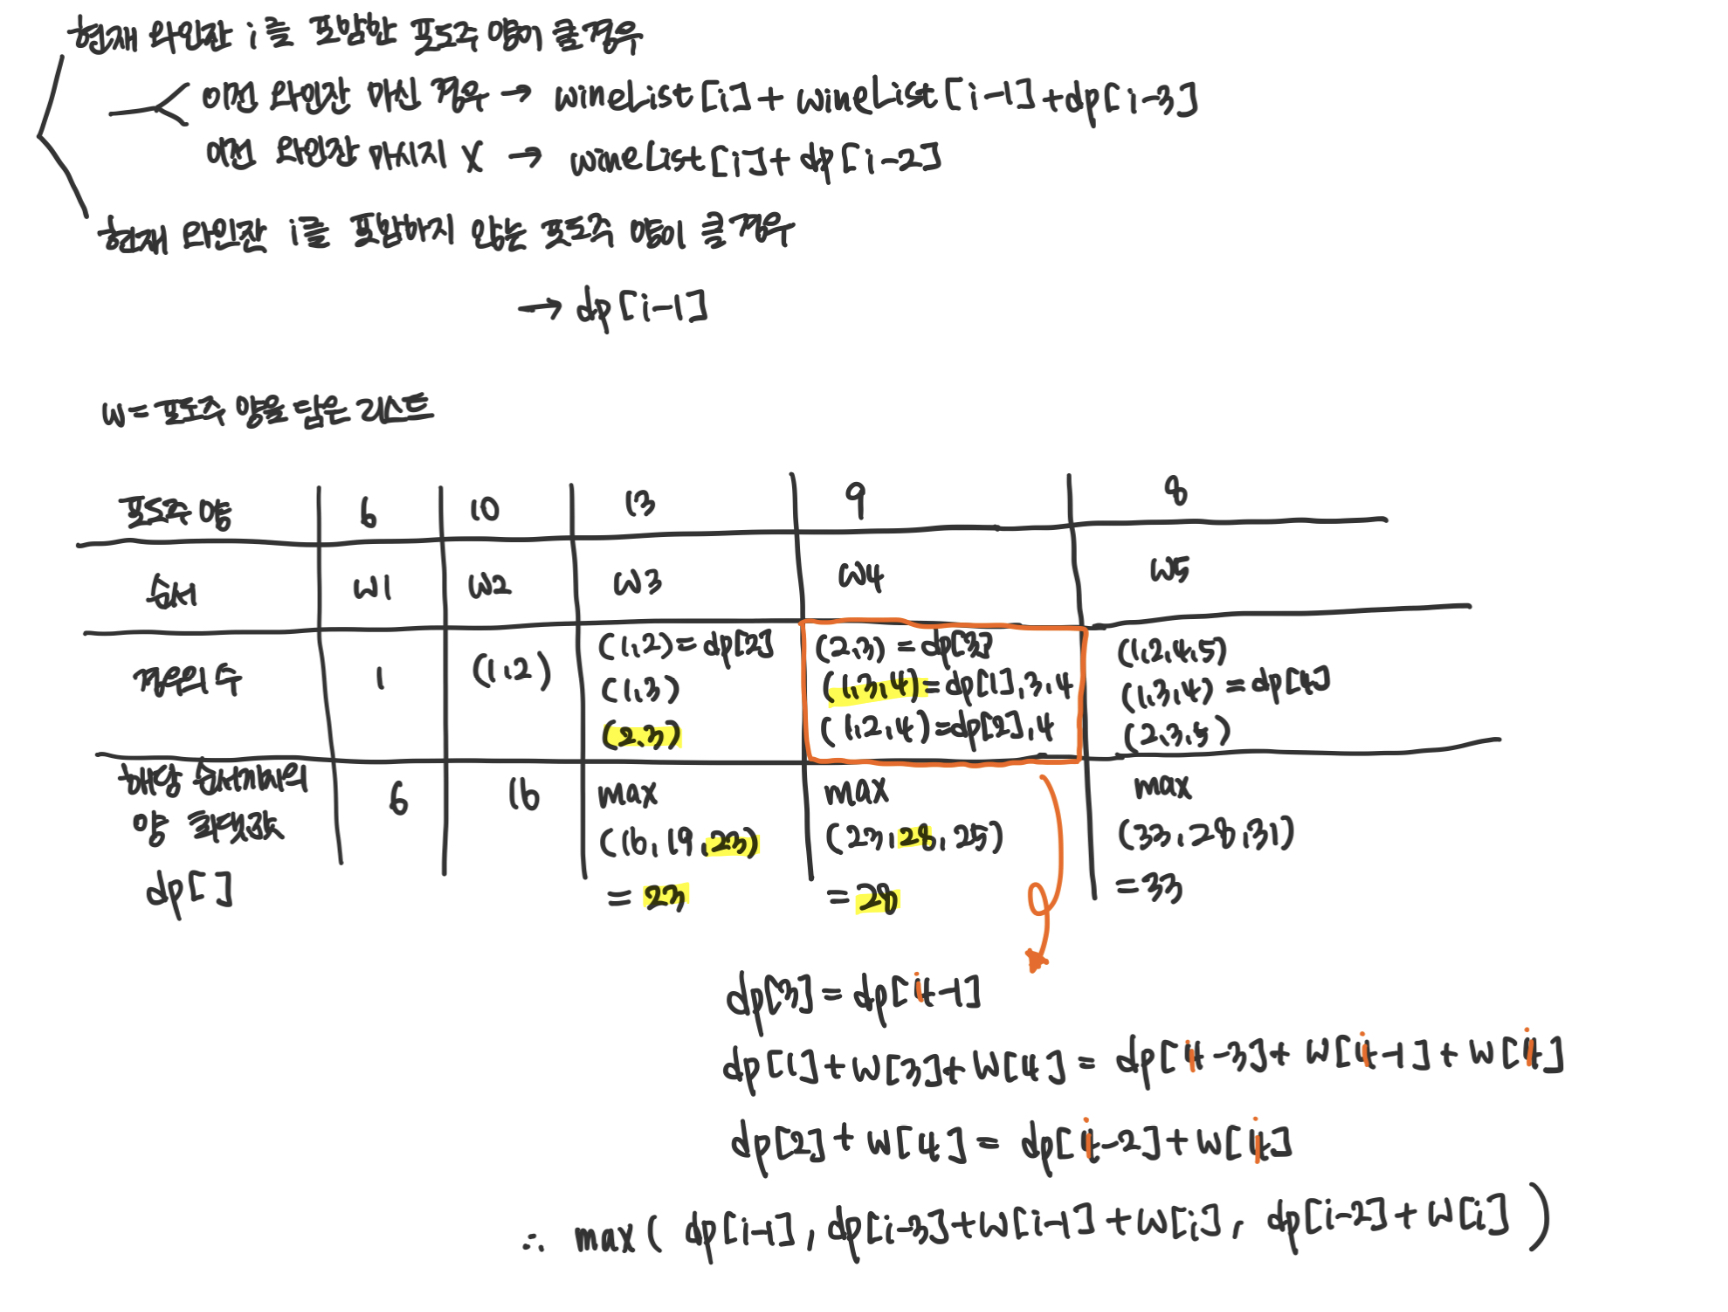 현재 와인잔 i를 포함한 포도주 양이 클 경우
이전 와인잔 마신 경우 → wineList[i] + wineList[i-1] + dp[i-3]
이전 와인잔 마시지 X → wineList[i] + dp[i-2]
현재 와인잔 i를 포함하지 않는 포도주 양이 클 경우
→ dp[i-1]
w = 포도주 양을 담은 리스트
포도주 양 6 10 13 9 8
순서 w1 w2 w3 w4 w5
경우의 수 1 (1,2) (1,2) = dp[2] (2,3) = dp[3] (1,2,4,5)
(1,3) (1,3,4) = dp[1],3,4 (1,3,4) = dp[4]
(2,3) (1,2,4) = dp[2],4 (2,3,5)
해당 순서까지의 6 16 max max max
양 최댓값 (16,19,23) (23,28,25) (33,28,31)
dp[] = 23 = 28 = 33
dp[3] = dp[i-1]
dp[1] + w[3] + w[4] = dp[i-3] + w[i-1] + w[i]
dp[2] + w[4] = dp[i-2] + w[i]
∴ max( dp[i-1], dp[i-3] + w[i-1] + w[i], dp[i-2] + w[i] )